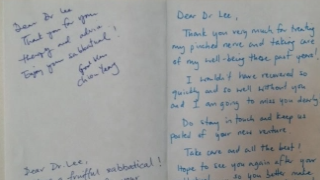 Dear Dr Lee
Thank you for your
therapy and advice
Enjoy your sabbatical!
Good luck
Dear Dr. Lee,
fruitful sabbatical!
Dear Dr. Lee,
Thank you very much for treating
my pinched nerve and taking care
of my well-being these past years!
I wouldn't have recovered so
quickly and so well without you
and I am going to miss you dearly.
Do stay in touch and keep us
posted of your new venture.
Take care and all the best!
Hope to see you again after your
so you better make